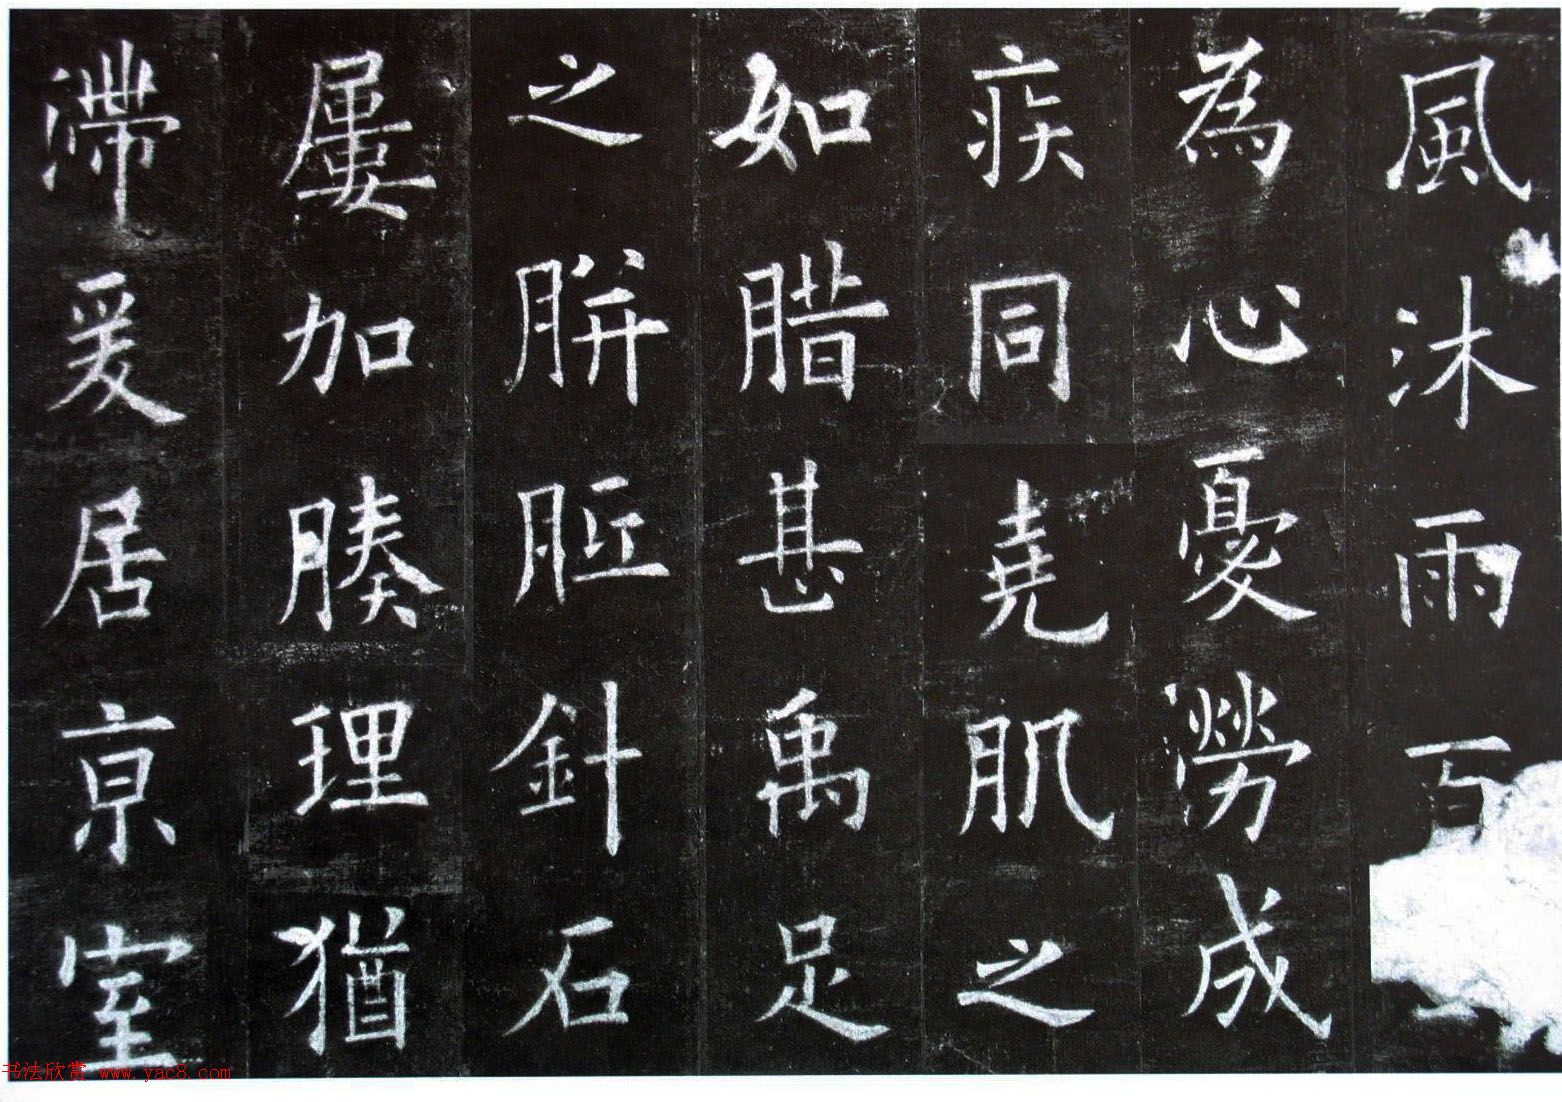 風沐雨百
為心憂勞成
疾同堯肌之
如腊甚禹足
之胼胝針石
屢加腠理猶
滯爰居京室
书法欣赏 www.yac8.com